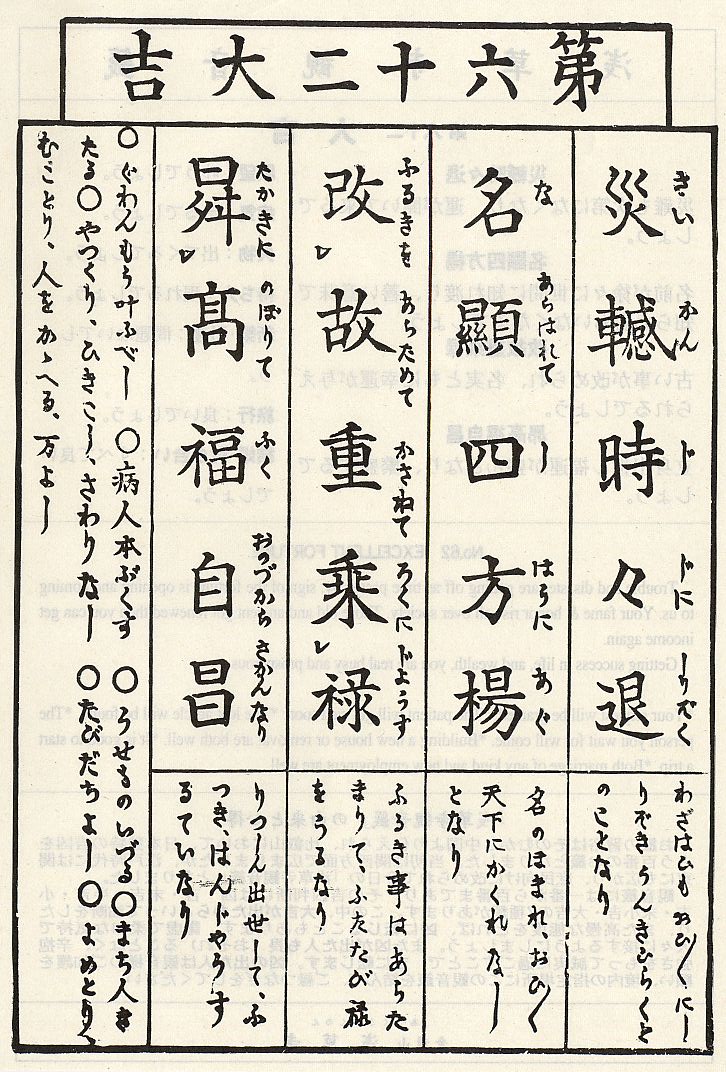 第六十二大吉
さい かん じ じに しりぞく
災轗時々退
わざはひもおひ〳〵にし
りぞきうんきひらくと
のことなり
な あらはれて し はうに あがる
名顯四方楊
名のほまれおひ〳〵
天下にかくれなし
となり
ふるきを あらためて かさねて ろくに じようず
改レ故重乘レ禄
ふるき事はあらた
まりてふたたび禄
をうるなり
たかきに のぼりて ふく おのづから さかんなり
曻レ髙福自昌
りつしん出世して、ふ
つき、はんじやうす
るていなり
○ぐわんもう叶ふべし ○病人本ぶくす ○うせものいづる○まち人き
たる○やづくり、ひきこし、さわりなし ○たびだちよし○よめとり、
むことり、人をかゝへる、万よし